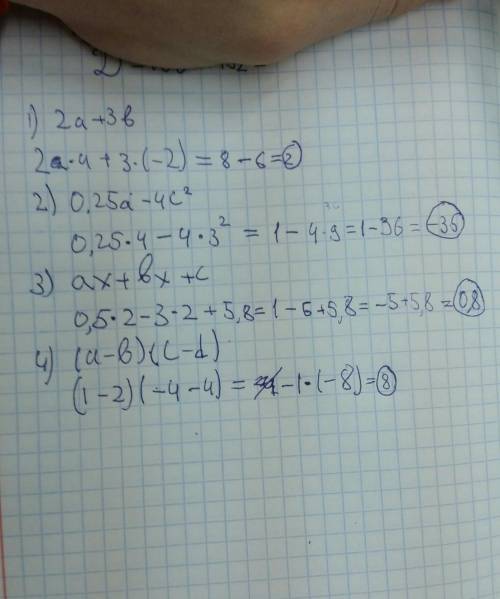 1) 2a+3b
2a·4+3·(-2)=8-6=2
2) 0,25a-4c²
0,25·4-4·3²=1-4·9=1-36=-35
3) ax+bx+c
0,5·2-3·2+5,8=1-6+5,8=-5+5,8=0,8
4) (a-b)(c-d)
(1-2)(-4-4)=-1·(-8)=8